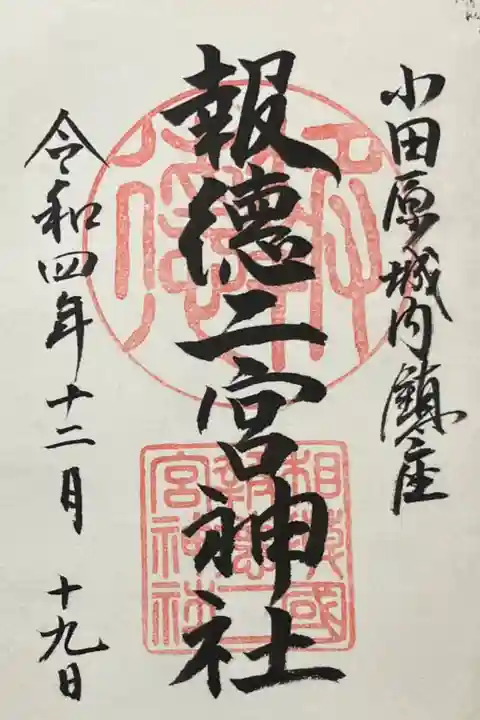 小田原城内鎮座
報徳二宮神社
令和四年十二月十九日
相模國
報徳二
宮神社